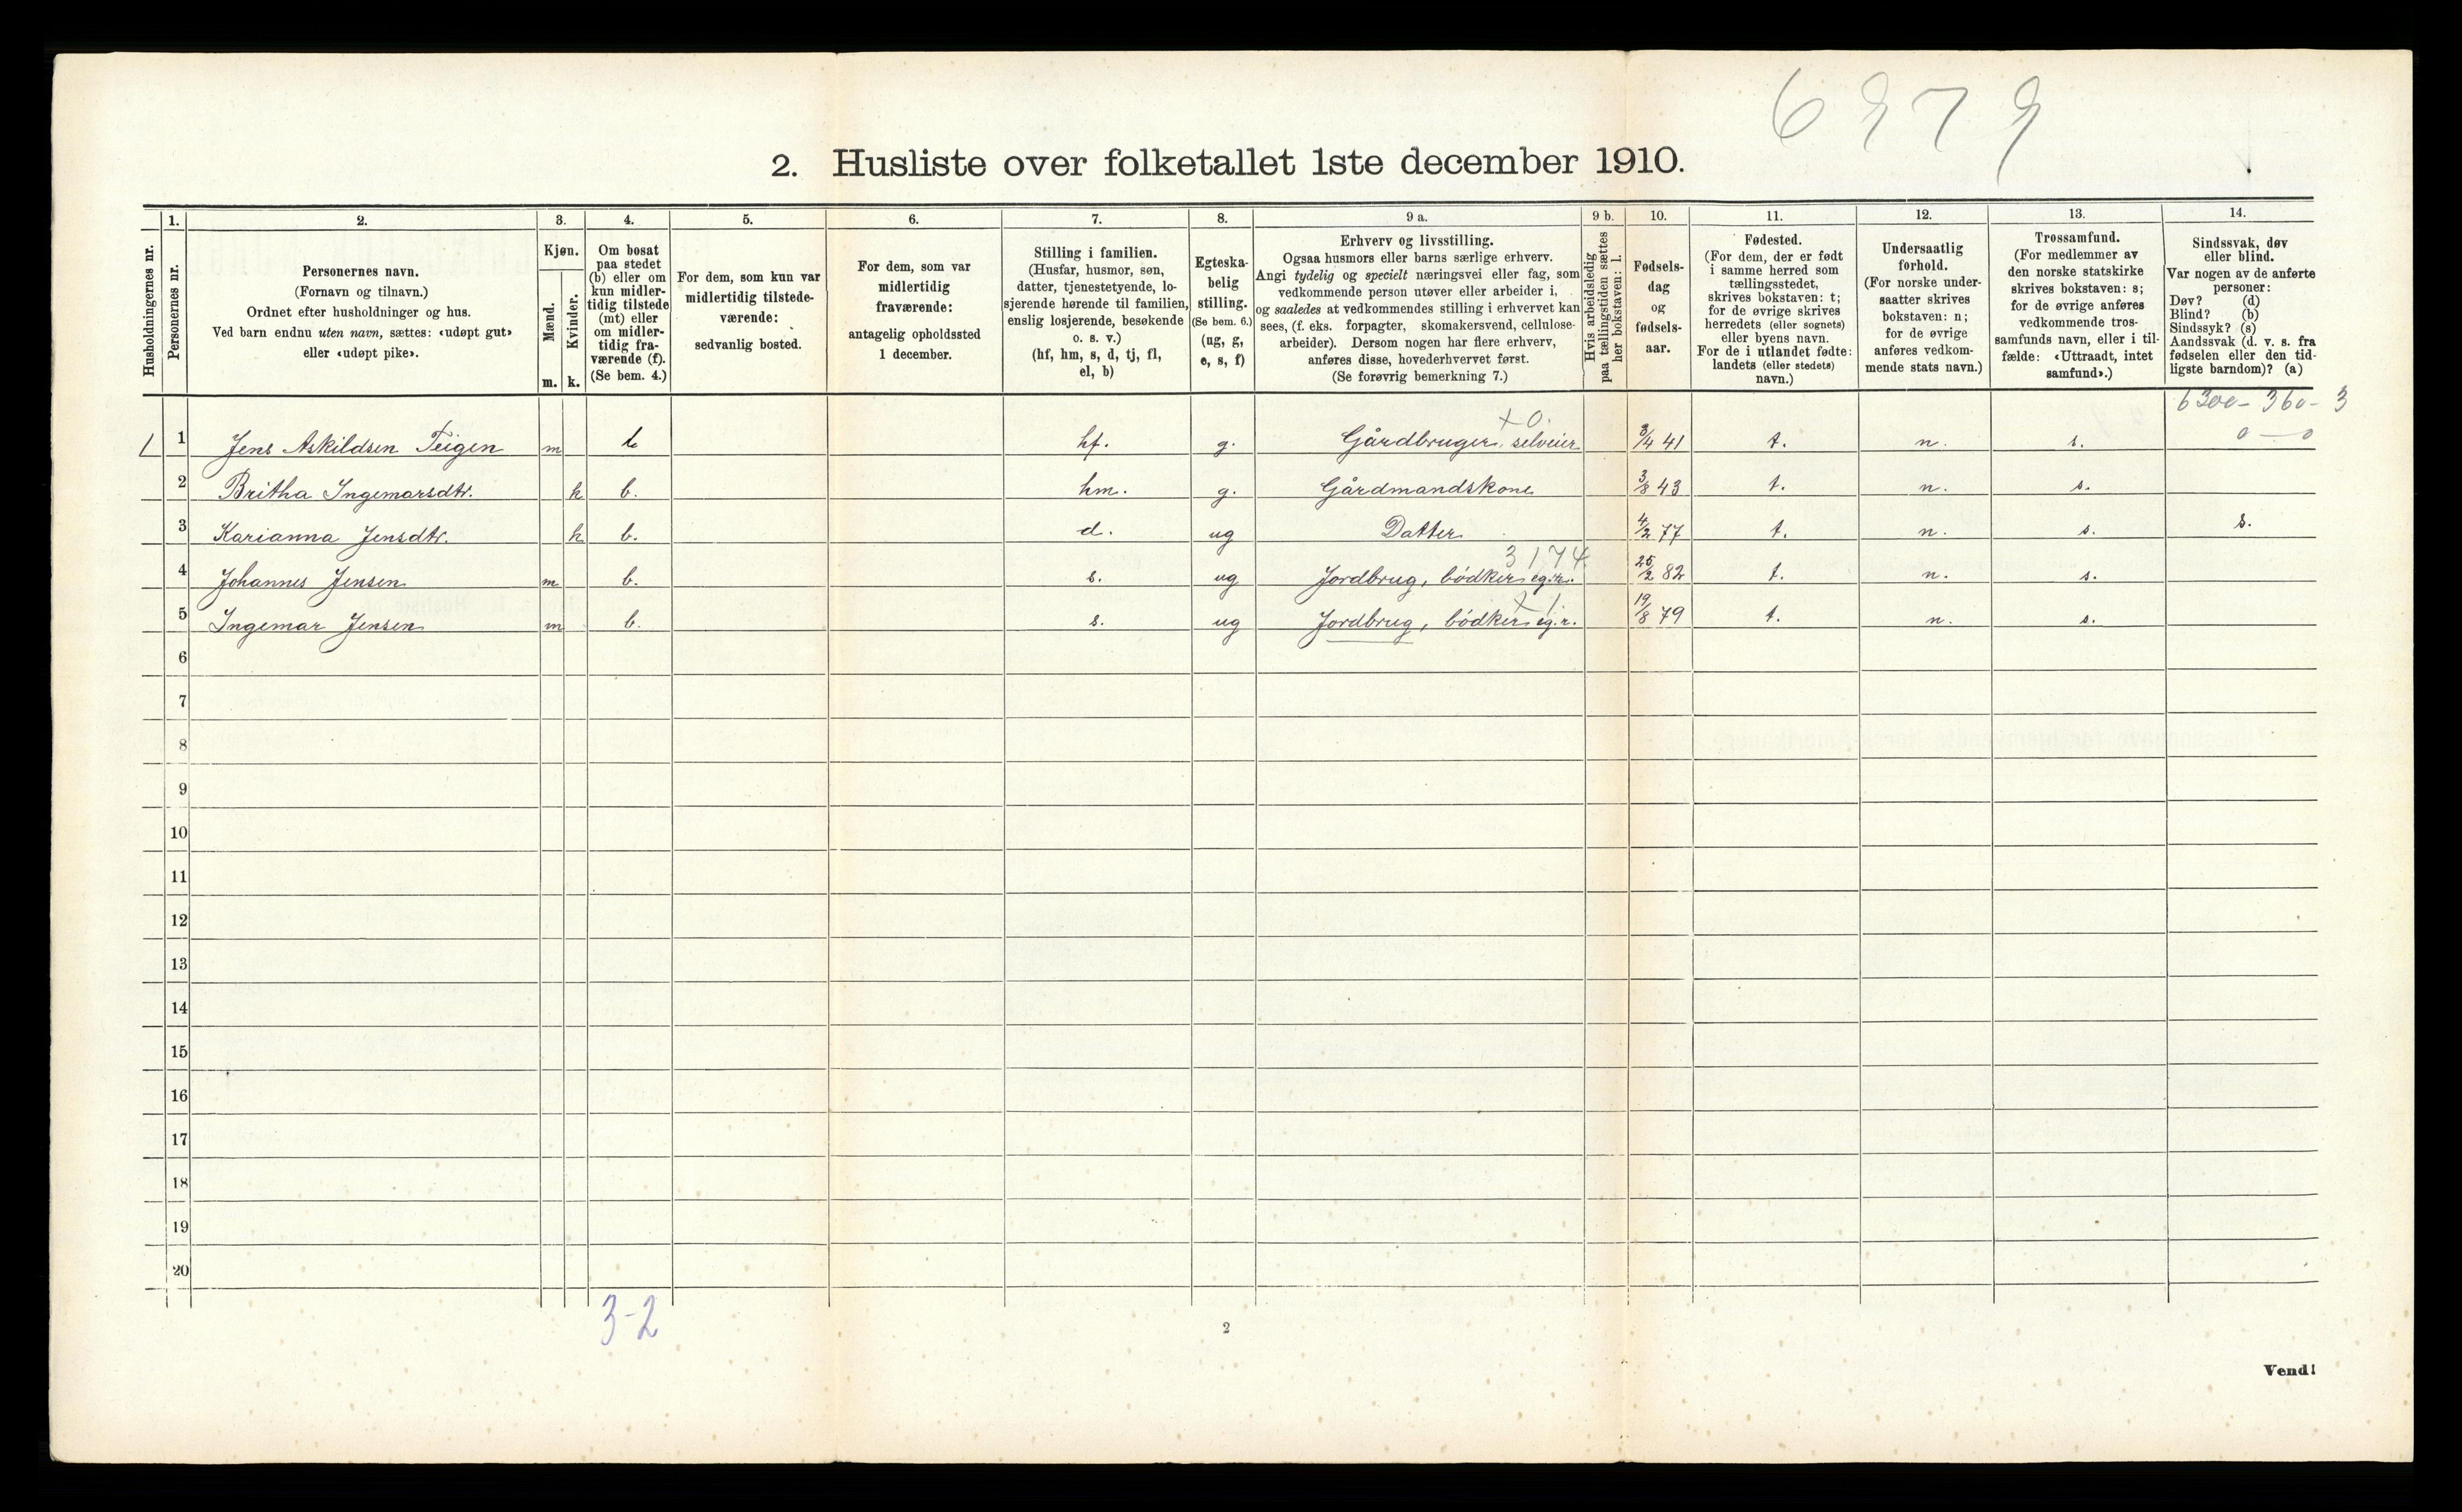 2. Husliste over folketallet 1ste december 1910.
Husholdningernes nr.
1. Personernes nr.
2. Personernes navn.
(Fornavn og tilnavn.)
Ordnet efter husholdninger og hus.
Ved barn endnu uten navn, sættes: «udøpt gut»
eller «udøpt pike».
3. Kjøn.
Mænd. m.
Kvinder. k.
4. Om bosat
paa stedet
(b) eller om
kun midler-
tidig tilstede
(mt) eller
om midler-
tidig fra-
værende (f).
(Se bem. 4.)
5. For dem, som kun var
midlertidig tilstede-
værende:
sedvanlig bosted.
6. For dem, som var
midlertidig
fraværende:
antagelig opholdssted
1 december.
7. Stilling i familien.
(Husfar, husmor, søn,
datter, tjenestetyende, lo-
sjerende hørende til familien,
enslig losjerende, besøkende
o. s. v.)
(hf, hm, s, d, tj, fl,
el, b)
8. Egteska-
belig
stilling.
(Se bem. 6.)
(ug, g,
e, s, f)
9 a. Erhverv og livsstilling.
Ogsaa husmors eller barns særlige erhverv.
Angi tydelig og specielt næringsvei eller fag, som
vedkommende person utøver eller arbeider i,
og saaledes at vedkommendes stilling i erhvervet kan
sees, (f. eks. forpagter, skomakersvend, cellulose-
arbeider). Dersom nogen har flere erhverv,
anføres disse, hovederhvervet først.
(Se forøvrig bemerkning 7.)
9 b. Hvis arbeidsledig
paa tællingstiden sættes
her bokstaven: l.
10. Fødsels-
dag
og
fødsels-
aar.
11. Fødested.
(For dem, der er født
i samme herred som
tællingsstedet,
skrives bokstaven: t;
for de øvrige skrives
herredets (eller sognets)
eller byens navn.
For de i utlandet fødte:
landets (eller stedets)
navn.)
12. Undersaatlig
forhold.
(For norske under-
saatter skrives
bokstaven: n;
for de øvrige
anføres vedkom-
mende stats navn.)
13. Trossamfund.
(For medlemmer av
den norske statskirke
skrives bokstaven: s;
for de øvrige anføres
vedkommende tros-
samfunds navn, eller i til-
fælde: «Uttraadt, intet
samfund».)
14. Sindssvak, døv
eller blind.
Var nogen av de anførte
personer:
Døv? (d)
Blind? (b)
Sindssyk? (s)
Aandssvak (d. v. s. fra
fødselen eller den tid-
ligste barndom)? (a)
6300 - 360 - 3
x 0. 0 — 0
1 1 Jens Askildsen Teigen m b hf. g. Gårdbruger, selveier 3/4 41 t. n. s.
2 Britha Ingemarsdtr. k b. hm. g. Gårdmandskone 3/8 43 t. n. s.
3 Karianna Jensdtr. k b. d. ug Datter 4/2 77 t. n. s. s.
3174
4 Johannes Jensen m b. s. ug Jordbrug, bødker eg.r. 25/2 82 t. n. s.
x 1.
5 Ingemar Jensen m b. s. ug Jordbrug, bødker eg.r. 19/8 79 t. n. s.
6
7
8
9
10
11
12
13
14
15
16
17
18
19
20
3-2
2
Vend!